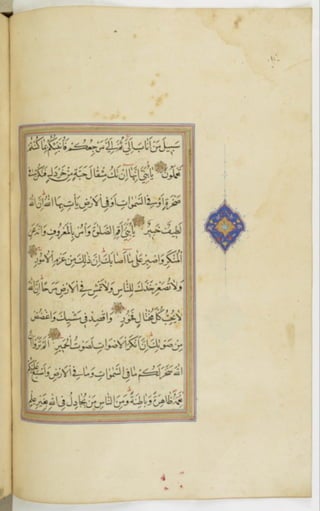 سَبِيلَ مَنْ أَنَابَ إِلَيَّ ثُمَّ إِلَيَّ مَرْجِعُكُمْ فَأُنَبِّئُكُمْ بِمَا كُنْتُمْ
تَعْمَلُونَ يَا بُنَيَّ إِنَّهَا إِنْ تَكُ مِثْقَالَ حَبَّةٍ مِنْ خَرْدَلٍ فَتَكُنْ فِي
صَخْرَةٍ أَوْ فِي السَّمَوَاتِ أَوْ فِي الْأَرْضِ يَأْتِ بِهَا اللَّهُ إِنَّ اللَّهَ
لَطِيفٌ خَبِيرٌ يَا بُنَيَّ أَقِمِ الصَّلَوةَ وَأْمُرْ بِالْمَعْرُوفِ وَانْهَ عَنِ
الْمُنْكَرِ وَاصْبِرْ عَلَى مَا أَصَابَكَ إِنَّ ذَلِكَ مِنْ عَزْمِ الْأُمُورِ
وَلَا تُصَعِّرْ خَدَّكَ لِلنَّاسِ وَلَا تَمْشِ فِي الْأَرْضِ مَرَحًا إِنَّ اللَّهَ
لَا يُحِبُّ كُلَّ مُخْتَالٍ فَخُورٍ وَاقْصِدْ فِي مَشْيِكَ وَاغْضُضْ
مِنْ صَوْتِكَ إِنَّ أَنْكَرَ الْأَصْوَاتِ لَصَوْتُ الْحَمِيرِ أَلَمْ تَرَوْا أَنَّ
اللَّهَ سَخَّرَ لَكُمْ مَا فِي السَّمَوَاتِ وَمَا فِي الْأَرْضِ وَأَسْبَغَ عَلَيْكُمْ
نِعَمَهُ ظَاهِرَةً وَبَاطِنَةً وَمِنَ النَّاسِ مَنْ يُجَادِلُ فِي اللَّهِ بِغَيْرِ عِلْمٍ